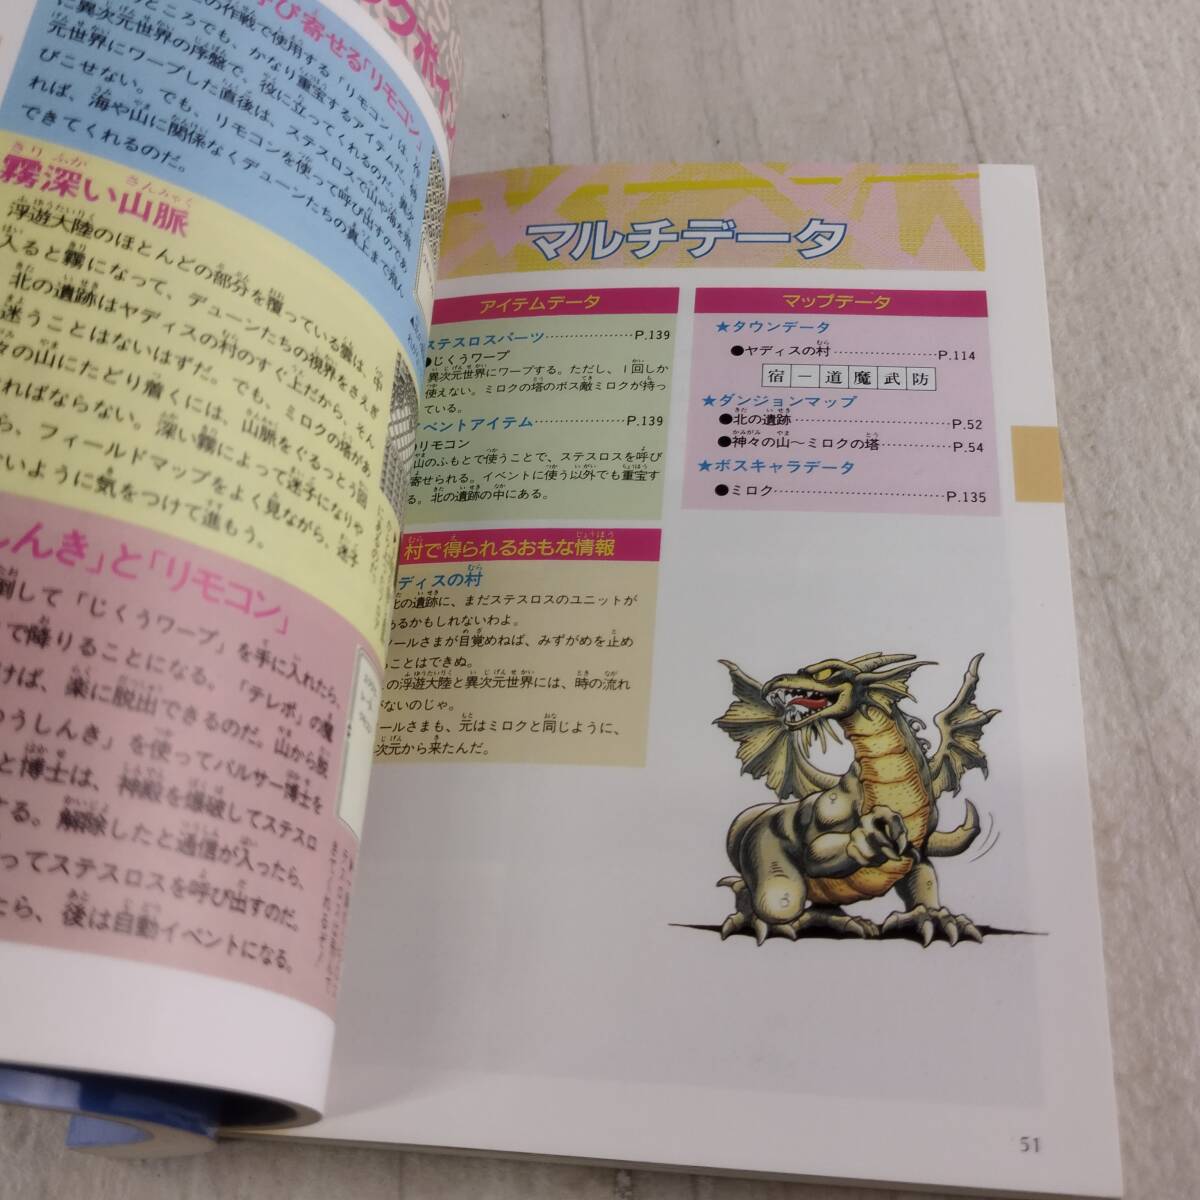 び寄せる「リモコン」
の作戦で使用する「リモコン」は、作
ところでも、かなり重宝するアイテムだ。特
に異次元世界の序盤で、役に立ってくれるのだ。異次
元世界にワープした直後は、ステスロスで山や海を飛
びこせない。でも、リモコンを使って呼び出すのであ
れば、海や山に関係なくデューンたちの真上まで飛ん
できてくれるのだ。
霧深い山脈
浮遊大陸のほとんどの部分を覆っている雲は、中
入ると霧になって、デューンたちの視界をさえぎ
北の遺跡はヤディスの村のすぐ上だから、そん
迷うことはないはずだ。でも、ミロクの塔があ
々の山にたどり着くには、山脈をぐるっとう回
ければならない。深い霧によって迷子になりや
ら、フィールドマップをよく見ながら、迷子
ないように気をつけて進もう。
しんき」と「リモコン」
倒して「じくうワープ」を手に入れたら、
で降りることになる。「テレポ」の魔
けば、楽に脱出できるのだ。山から脱
つうしんき」を使ってバルサー博士を
と博士は、神殿を爆破してステスロ
する。解除したと通信が入ったら、
ってステスロスを呼び出すのだ。
たら、後は自動イベントになる。
マルチデータ
アイテムデータ
ステスロスパーツ……………P.139
●じくうワープ
異次元世界にワープする。ただし、1回しか
使えない。ミロクの塔のボス敵ミロクが持っ
ている。
ベントアイテム……………P.139
リモコン
山のふもとで使うことで、ステスロスを呼び
寄せられる。イベントに使う以外でも重宝す
る。北の遺跡の中にある。
村で得られるおもな情報
ディスの村
北の遺跡に、まだステスロスのユニットが
あるかもしれないわよ。
ールさまが目覚めねば、みずがめを止め
ることはできぬ。
の浮遊大陸と異次元世界には、時の流れ
がないのじゃ。
ールさまも、元はミロクと同じように、
次元から来たんだ。
マップデータ
★タウンデータ
●ヤディスの村……………P.114
宿 － 道 魔 武 防
★ダンジョンマップ
●北の遺跡……………P.52
●神々の山～ミロクの塔……………P.54
★ボスキャラデータ
●ミロク……………P.135
51